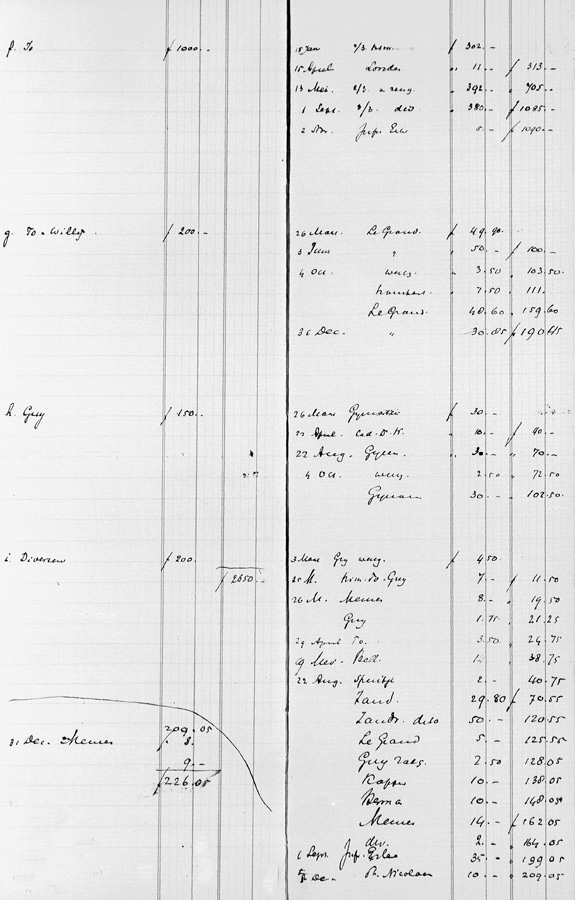 f. To f 1000.-
15 Jan 2/3 f 302.-
15 April 11.- f 313.-
13 Mei 2/3 392.- 705.-
1 Sept. 2/3 380.- f 1085.-
2 Nov. Jufr. Erlas 5.- f 1090.-
g. To + Willy f 200.-
26 Mars Le Grand f 49.90
3 Juni " 50.- f 100.-
4 Oct. 3.50 103.50
7.50 111.
Le Grand 48.60 159.60
31 Dec. " 30.85 f 190.45
h. Guy f 150.-
26 Mars f 30.-
April. Cad. D. K. 10.- f 40.-
22 Aug. Gymn. 30.- 70.-
4 Oct. 2.50 72.50
Gymn 30.- 102.50
i. Diversen f 200. f 2650.-
3 Mars Guy f 4.50
25 M. To. Guy 7.- f 11.50
26 M. Memes 8.- 19.50
Guy 1.75 21.25
29 April To. 3.50 24.75
19 Mei - 14 38.75
22 Aug. Spuitje 2.- 40.75
Zand. 29.80 f 70.55
Zandv. dito 50.- 120.55
31 Dec. Memes 209.05
f. 8.
9.-
f 226.05
Le Grand 5.- 125.55
Guy 2.50 128.05
Kapper 10.- 138.05
Bema 10.- 148.05
Memes 14.- f 162.05
div. 2.- 164.05
1 Sept. Jufr. Erlas 35.- 199.05
Dec. St. Nicolaas 10.- 209.05